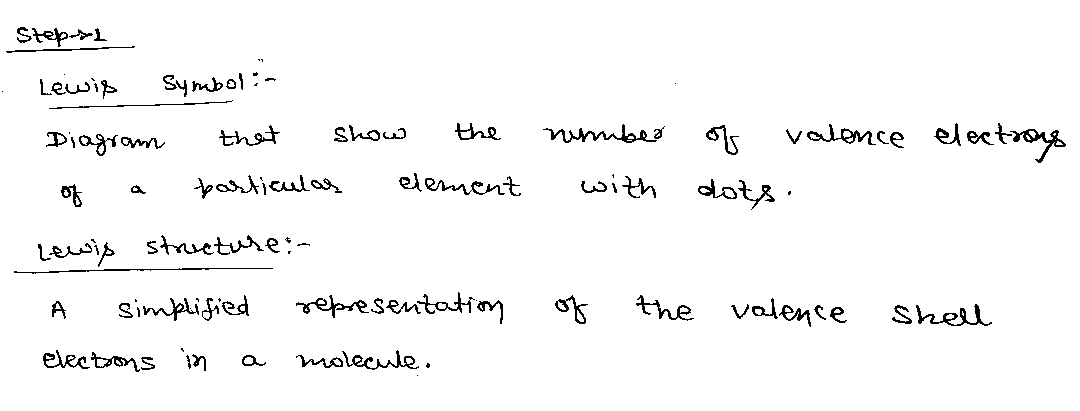 Step→1
Lewis Symbol:-
Diagram that show the number of valence electrons
of a particular element with dots.
Lewis structure:-
A simplified representation of the valence shell
electrons in a molecule.